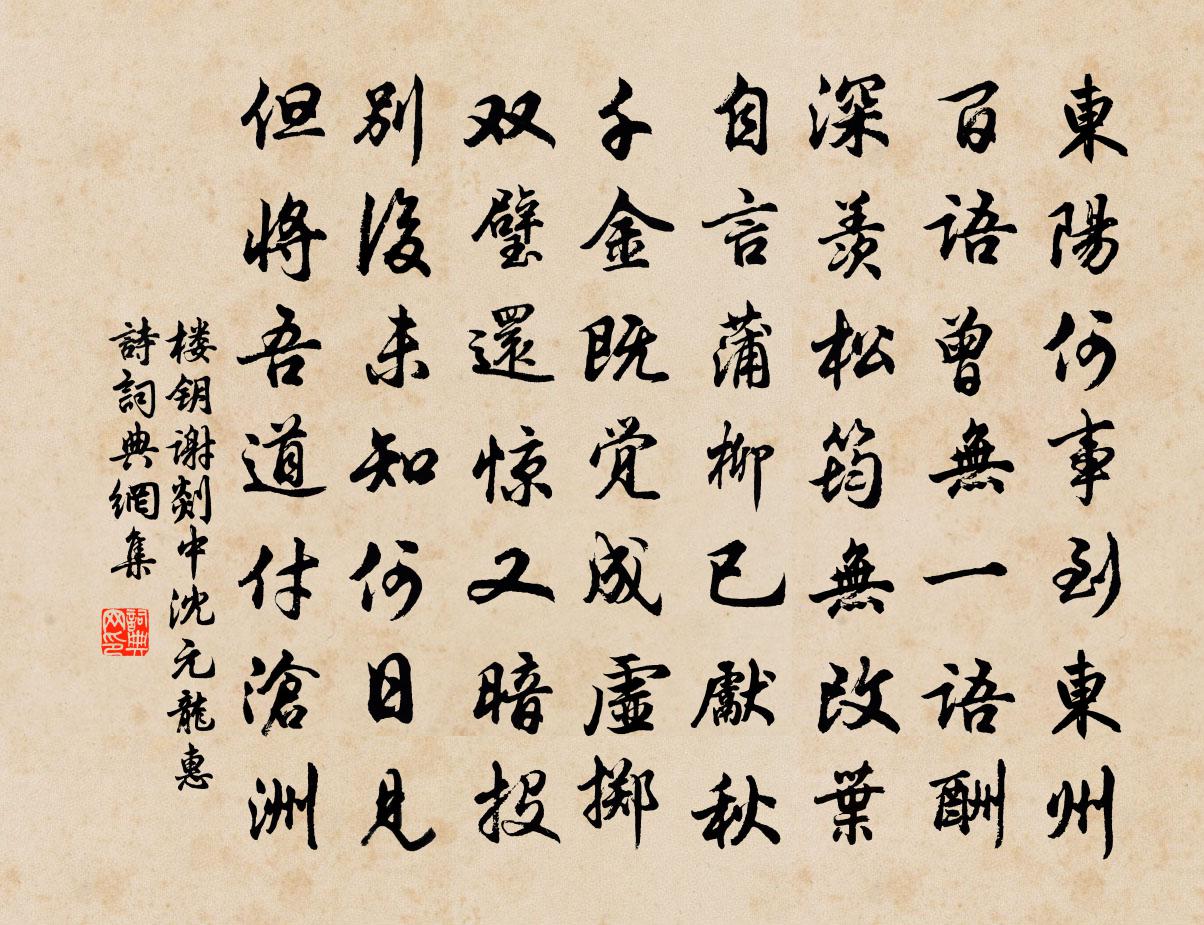 東陽何事到東州
百語曾無一語酬
深羨松筠無改葉
自言蒲柳已獻秋
千金既覚成虛擲
双璧還惊又暗投
別後未知何日見
但將吾道付滄洲
楼钥谢剡中沈元龍惠
詩詞典網集
詞典网印